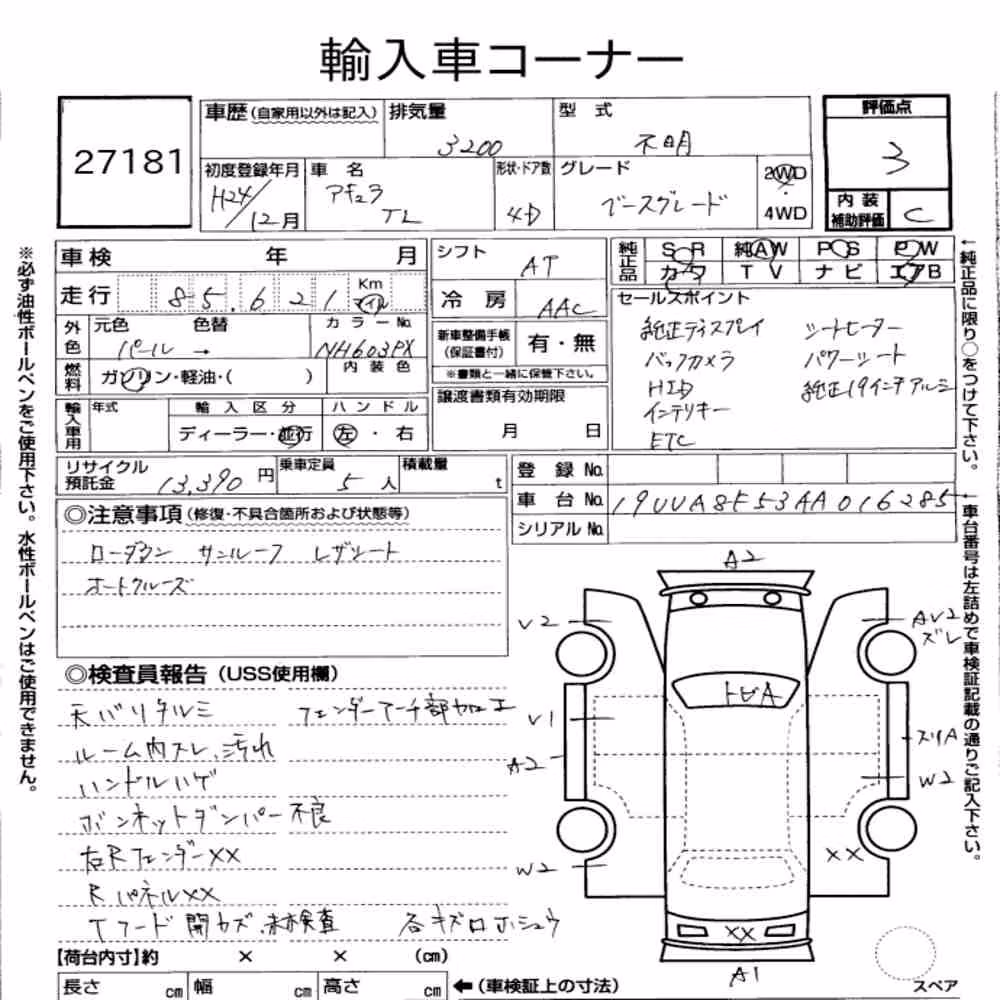 輸入車コーナー
27181
車歴(自家用以外は記入) 排気量 3200 型式 不明
評価点 3
初度登録年月 H24/12月 車名 アキュラ TL 形状・ドア数 4D グレード ベースグレード 2WD 4WD
内装補助評価 C
車検 年 月
走行 85,621 Km マイル
外色 元色 パール 色替 → カラーNo. NH603PX
燃料 ガソリン・軽油・( ) 内装色
輸入車用 年式 輸入区分 ディーラー・並行 ハンドル 左・右
シフト AT
冷房 AAC
新車整備手帳(保証書付) 有・無
※書類と一緒に保管下さい。
譲渡書類有効期限 月 日
純正品 SR 純AW PS PW
カワ TV ナビ エアB
セールスポイント
純正ディスプレイ シートヒーター
バックカメラ パワーシート
HID 純正19インチアルミ
インテリキー
ETC
リサイクル預託金 13,390円 乗車定員 5人 積載量 t
登録No.
車台No. 19UUA8F53AA016285
シリアルNo.
◎注意事項(修復・不具合箇所および状態等)
ローダウン サンルーフ レザシート
オートクルーズ
◎検査員報告(USS使用欄)
天バリタルミ フェンダーアーチ部加工
ルーム内スレ、汚れ
ハンドルハゲ
ボンネットダンパー不良
右Rフェンダー××
RパネルXX
Tフード開カズ、未検査 各キズロホシュウ
【荷台内寸】約 × × (cm)
長さ cm 幅 cm 高さ cm ←(車検証上の寸法)
A2
V2
AV2
ズレ
トビA
V1
A2
スリA
W2
W2
XX
XX
A1
スペア
※必ず油性ボールペンをご使用下さい。水性ボールペンはご使用できません。
←純正品に限り○をつけて下さい。
←車台番号は左詰めで車検証記載の通りご記入下さい。